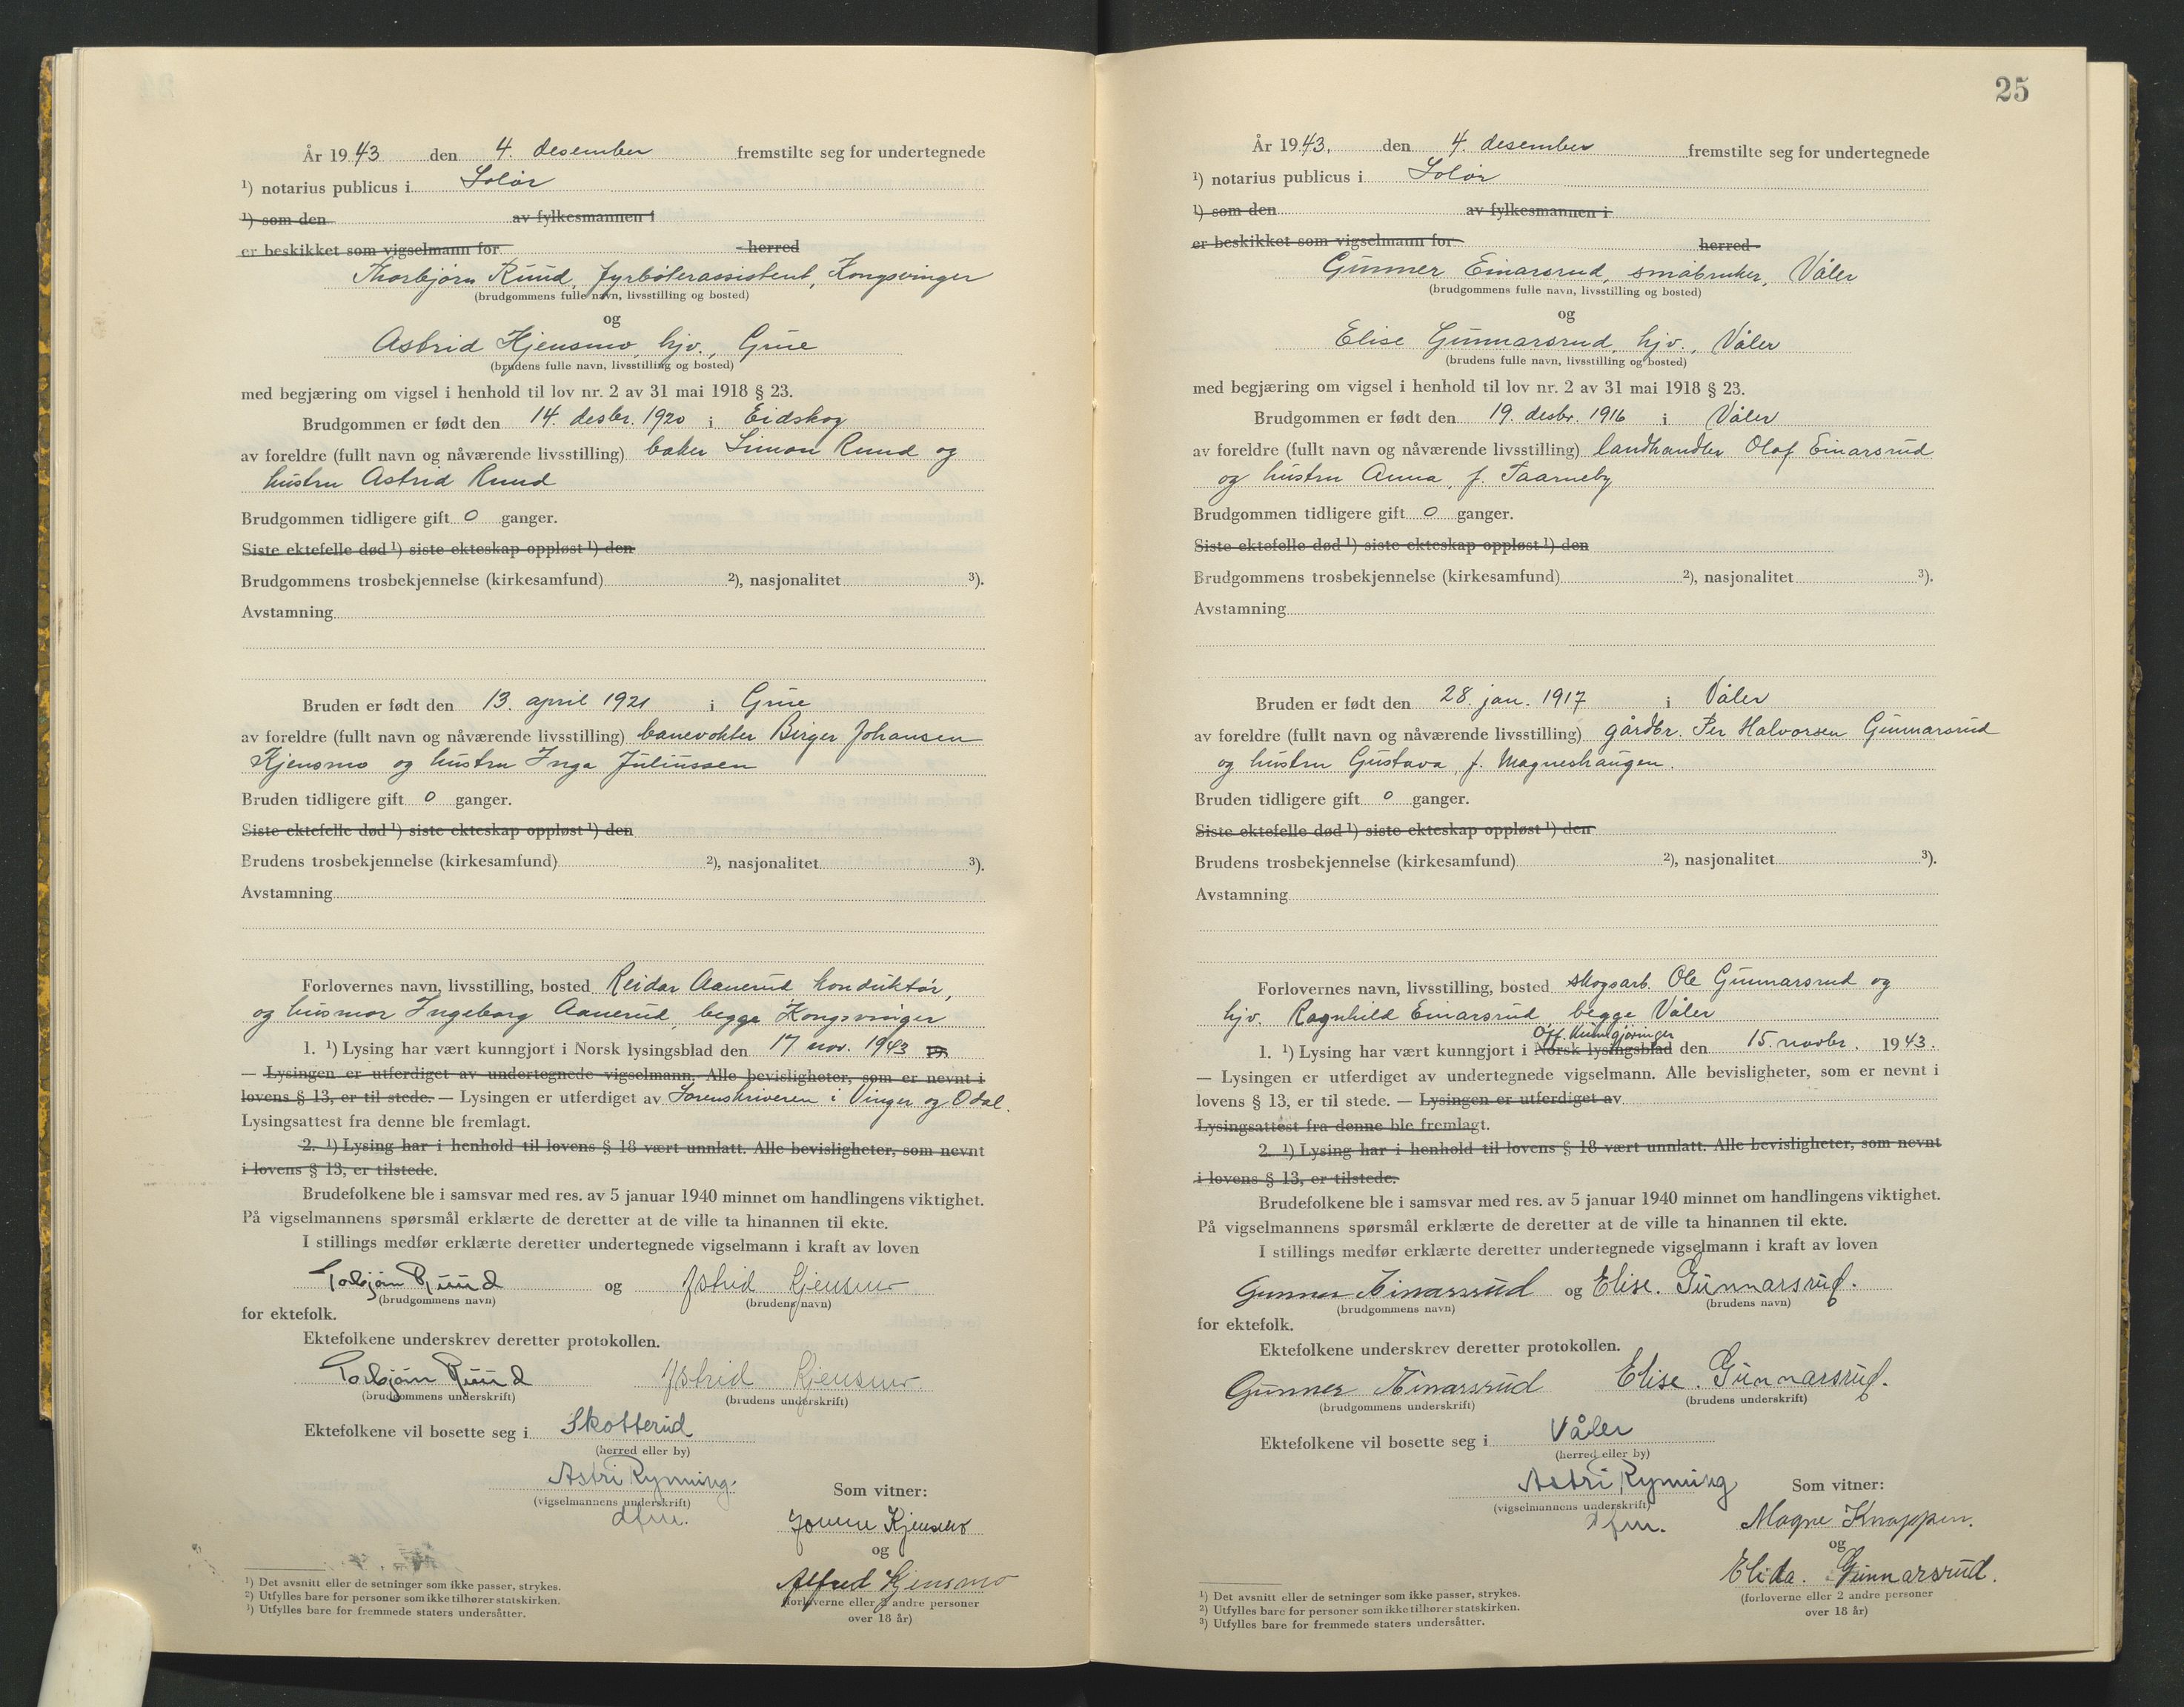 År 1943 den 4. desember fremstilte seg for undertegnede
¹) notarius publicus i Solør
¹) som den av fylkesmannen i
er beskikket som vigselmann for herred
Thorbjørn Ruud, fyrbøterassistent, Kongsvinger
(brudgommens fulle navn, livsstilling og bosted)
og
Astrid Kjensmo, hjv., Grue
(brudens fulle navn, livsstilling og bosted)
med begjæring om vigsel i henhold til lov nr. 2 av 31 mai 1918 § 23.
Brudgommen er født den 14. desbr. 1920 i Eidskog
av foreldre (fullt navn og nåværende livsstilling) baker Simon Ruud og
hustru Astrid Ruud
Brudgommen tidligere gift 0 ganger.
Siste ektefelle død ¹) siste ekteskap oppløst ¹) den
Brudgommens trosbekjennelse (kirkesamfund) ²), nasjonalitet ³).
Avstamning
Bruden er født den 13. april 1921 i Grue
av foreldre (fullt navn og nåværende livsstilling) banevokter Birger Johansen
Kjensmo og hustru Inga Juliussen
Bruden tidligere gift 0 ganger.
Siste ektefelle død ¹) siste ekteskap oppløst ¹) den
Brudens trosbekjennelse (kirkesamfund) ²), nasjonalitet ³).
Avstamning
Forlovernes navn, livsstilling, bosted Reidar Aanerud konduktør,
og husmor Ingeborg Aanerud, begge Kongsvinger
1. ¹) Lysing har vært kunngjort i Norsk lysingsblad den 17 nov. 1943 19
— Lysingen er utferdiget av undertegnede vigselmann. Alle bevisligheter, som er nevnt i
lovens § 13, er til stede. — Lysingen er utferdiget av Sorenskriveren i Vinger og Odal.
Lysingsattest fra denne ble fremlagt.
2. ¹) Lysing har i henhold til lovens § 18 vært unnlatt. Alle bevisligheter, som nevnt
i lovens § 13, er tilstede.
Brudefolkene ble i samsvar med res. av 5 januar 1940 minnet om handlingens viktighet.
På vigselmannens spørsmål erklærte de deretter at de ville ta hinannen til ekte.
I stillings medfør erklærte deretter undertegnede vigselmann i kraft av loven
Torbjørn Ruud og Astrid Kjensmo
(brudgommens navn) (brudens navn)
for ektefolk.
Ektefolkene underskrev deretter protokollen.
Torbjørn Ruud Astrid Kjensmo.
(brudgommens underskrift) (brudens underskrift)
Ektefolkene vil bosette seg i Skotterud
(herred eller by)
Astri Rynning.
(vigselmannens underskrift)
dfm.
Som vitner:
Kjensmo
og
Alfred Kjensmo
(forloverne eller 2 andre personer
over 18 år)
¹) Det avsnitt eller de setninger som ikke passer, strykes.
²) Utfylles bare for personer som ikke tilhører statskirken.
³) Utfylles bare for fremmede staters undersåtter.
25
År 1943. den 4. desember fremstilte seg for undertegnede
¹) notarius publicus i Solør
¹) som den av fylkesmannen i
er beskikket som vigselmann for herred
Gunner Einarsrud, småbruker, Våler
(brudgommens fulle navn, livsstilling og bosted)
og
Elise Gunnarsrud, hjv., Våler
(brudens fulle navn, livsstilling og bosted)
med begjæring om vigsel i henhold til lov nr. 2 av 31 mai 1918 § 23.
Brudgommen er født den 19. desbr. 1916 i Våler
av foreldre (fullt navn og nåværende livsstilling) landhandler Olaf Einarsrud
og hustru Anna, f. Taarneby
Brudgommen tidligere gift 0 ganger.
Siste ektefelle død ¹) siste ekteskap oppløst ¹) den
Brudgommens trosbekjennelse (kirkesamfund) ²), nasjonalitet ³).
Avstamning
Bruden er født den 28. jan. 1917 i Våler
av foreldre (fullt navn og nåværende livsstilling) gårdbr. Per Halvorsen Gunnarsrud
og hustru Gustava, f. Magneshaugen.
Bruden tidligere gift 0 ganger.
Siste ektefelle død ¹) siste ekteskap oppløst ¹) den
Brudens trosbekjennelse (kirkesamfund) ²), nasjonalitet ³).
Avstamning
Forlovernes navn, livsstilling, bosted skogsarb. Ole Gunnarsrud og
hjv. Ragnhild Einarsrud, begge Våler
Off. Kunngjøringer
1. ¹) Lysing har vært kunngjort i Norsk lysingsblad den 15. novbr. 1943.
— Lysingen er utferdiget av undertegnede vigselmann. Alle bevisligheter, som er nevnt i
lovens § 13, er til stede. — Lysingen er utferdiget av
Lysingsattest fra denne ble fremlagt.
2. ¹) Lysing har i henhold til lovens § 18 vært unnlatt. Alle bevisligheter, som nevnt
i lovens § 13, er tilstede.
Brudefolkene ble i samsvar med res. av 5 januar 1940 minnet om handlingens viktighet.
På vigselmannens spørsmål erklærte de deretter at de ville ta hinannen til ekte.
I stillings medfør erklærte deretter undertegnede vigselmann i kraft av loven
Gunner Einarsrud og Elise. Gunnarsrud.
(brudgommens navn) (brudens navn)
for ektefolk.
Ektefolkene underskrev deretter protokollen.
Gunner Einarsrud Elise. Gunnarsrud.
(brudgommens underskrift) (brudens underskrift)
Ektefolkene vil bosette seg i Våler
(herred eller by)
Astri Rynning
(vigselmannens underskrift)
dfm.
Som vitner:
Magne Knappen.
og
Elida. Gunnarsrud.
(forloverne eller 2 andre personer
over 18 år)
¹) Det avsnitt eller de setninger som ikke passer, strykes.
²) Utfylles bare for personer som ikke tilhører statskirken.
³) Utfylles bare for fremmede staters undersåtter.